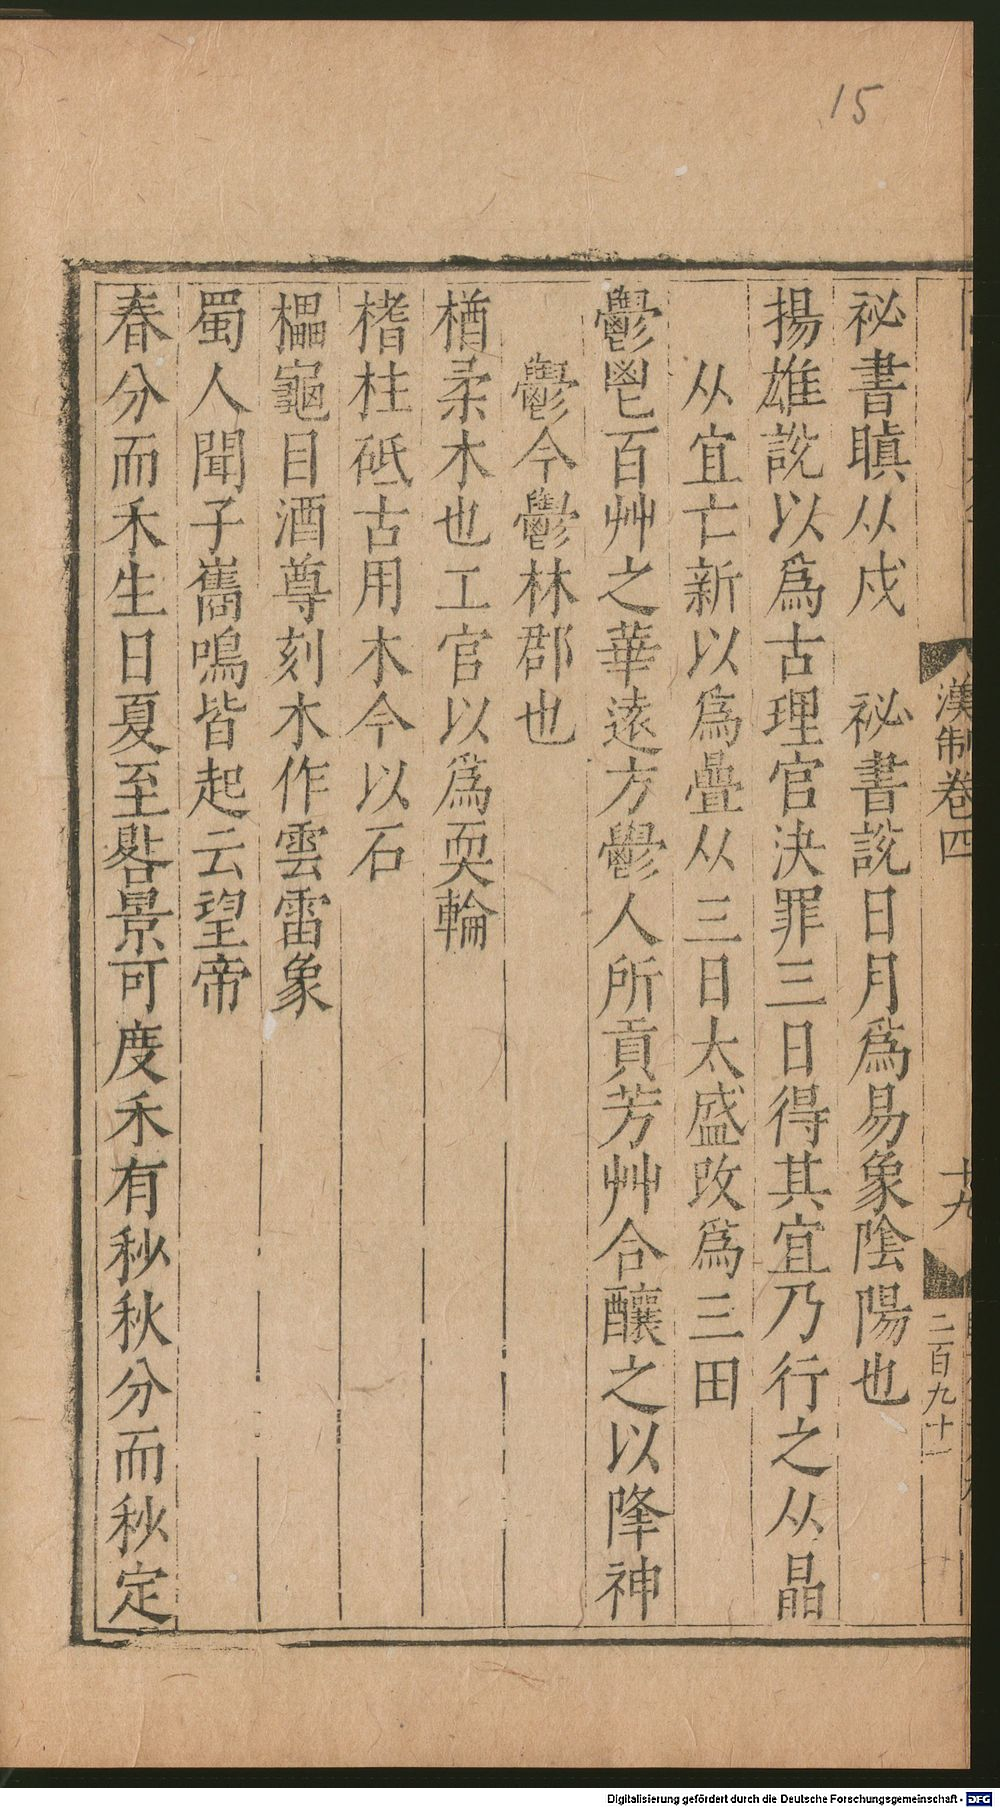 15
漢制卷四
十九
二百九十一
祕書瞋从戌　祕書說日月爲易象陰陽也
揚雄說以爲古理官決罪三日得其宜乃行之从晶
从宜亡新以爲疊从三日太盛攺爲三田
鬱鬯百艸之華遠方鬱人所貢芳艸合釀之以降神
鬱今鬱林郡也
楢柔木也工官以爲耎輪
楮柱砥古用木今以石
櫑龜目酒尊刻木作雲雷象
蜀人聞子巂鳴皆起云望帝
春分而禾生日夏至晷景可度禾有秒秋分而秒定
Digitalisierung gefördert durch die Deutsche Forschungsgemeinschaft - DFG